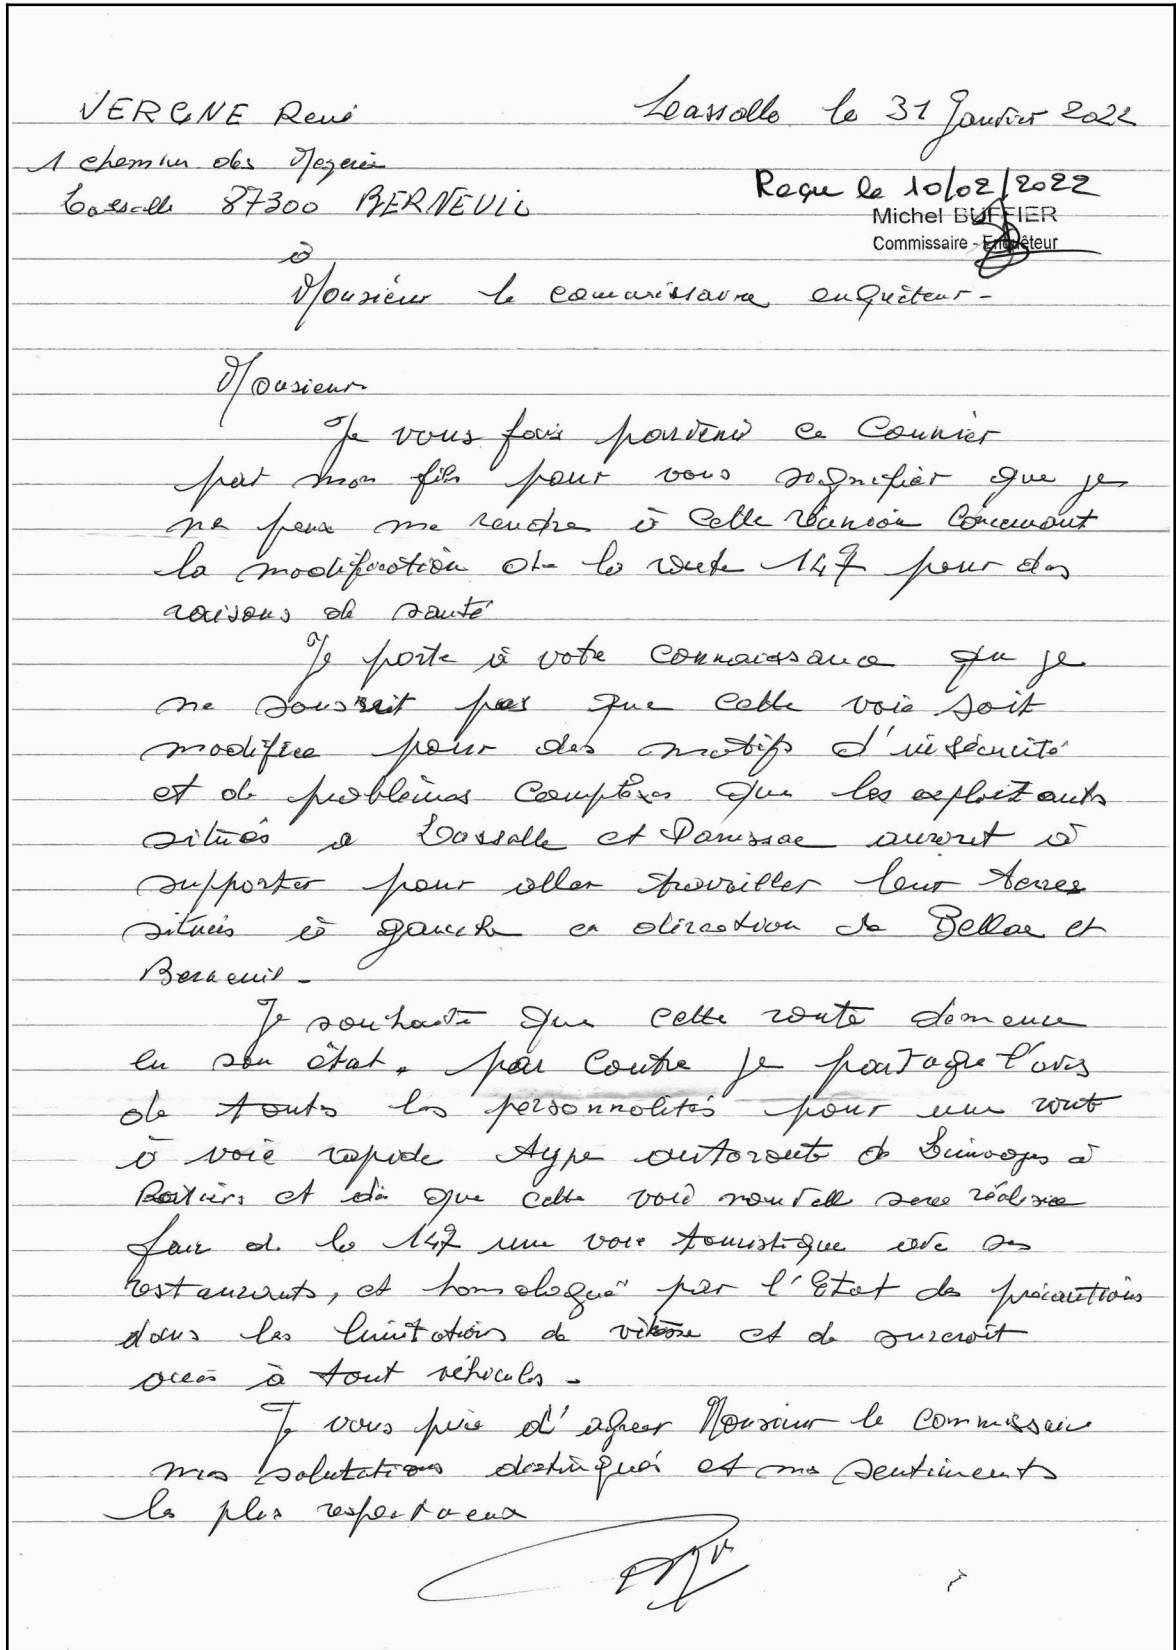 VERGNE René
Lassalle le 31 Janvier 2022
1 chemin des
Lassalle 87300 BERNEUIL
Reçu le 10/02/2022
Michel BUFFIER
Commissaire - Enquêteur
à
Monsieur le commissaire enquêteur -
Monsieur
Je vous fais parvenir ce Courrier
par mon fils pour vous signifier que je
ne peux me rendre à cette réunion Concernant
la modification de la route 147 pour des
raisons de santé
Je porte à votre connaissance que je
ne pas que cette voie soit
modifiée pour des motifs d'insécurité
et de problèmes Complexes que les exploitants
situés a Lassalle et Panissac auront à
supporter pour aller travailler leur terres
situés à gauche en direction de Bellac et
Berneuil -
Je souhaite que cette route demeure
en son état. par Contre je partage l'avis
de touts les personnalités pour une route
à voie rapide type autoroute de Limoges à
Poitiers et dès que cette voie nouvelle sera réalisée
faire de la 147 une voie touristique avec ses
restaurants, et homologué par l'Etat des précautions
dans les limitations de vitesse et de surcroit
accès à tout véhicules -
Je vous prie d'agréer Monsieur le Commissaire
mes salutations distingués et mes sentiments
les plus respectueux